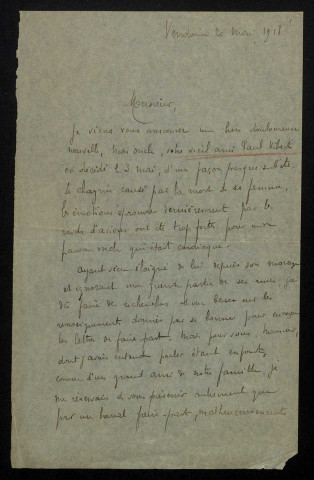 20 mai 1918
Monsieur,
Je viens vous annoncer un bien douloureuse
nouvelle, mon oncle, votre vieil ami Paul
est décédé le 3 mai, d'une façon presque subite.
Le chagrin causé par la mort de sa femme,
les émotions éprouvées dernièrement par les
raids d'avions ont été trop forts pour mon
pauvre oncle qui était cardiaque.
Ayant vécu éloigné de lui depuis son mariage
et ignorant un grande partie de ses amis, j'ai
dû faire de recherches et me baser sur les
renseignements donnés par sa bonne pour envoyer
les lettres de faire-part. Mais pour vous, Monsieur,
dont j'avais entendu parler étant enfant,
comme d'un grand ami de notre famille, je
me réservais de vous prévenir autrement que
par un banal faire-part, malheureusement